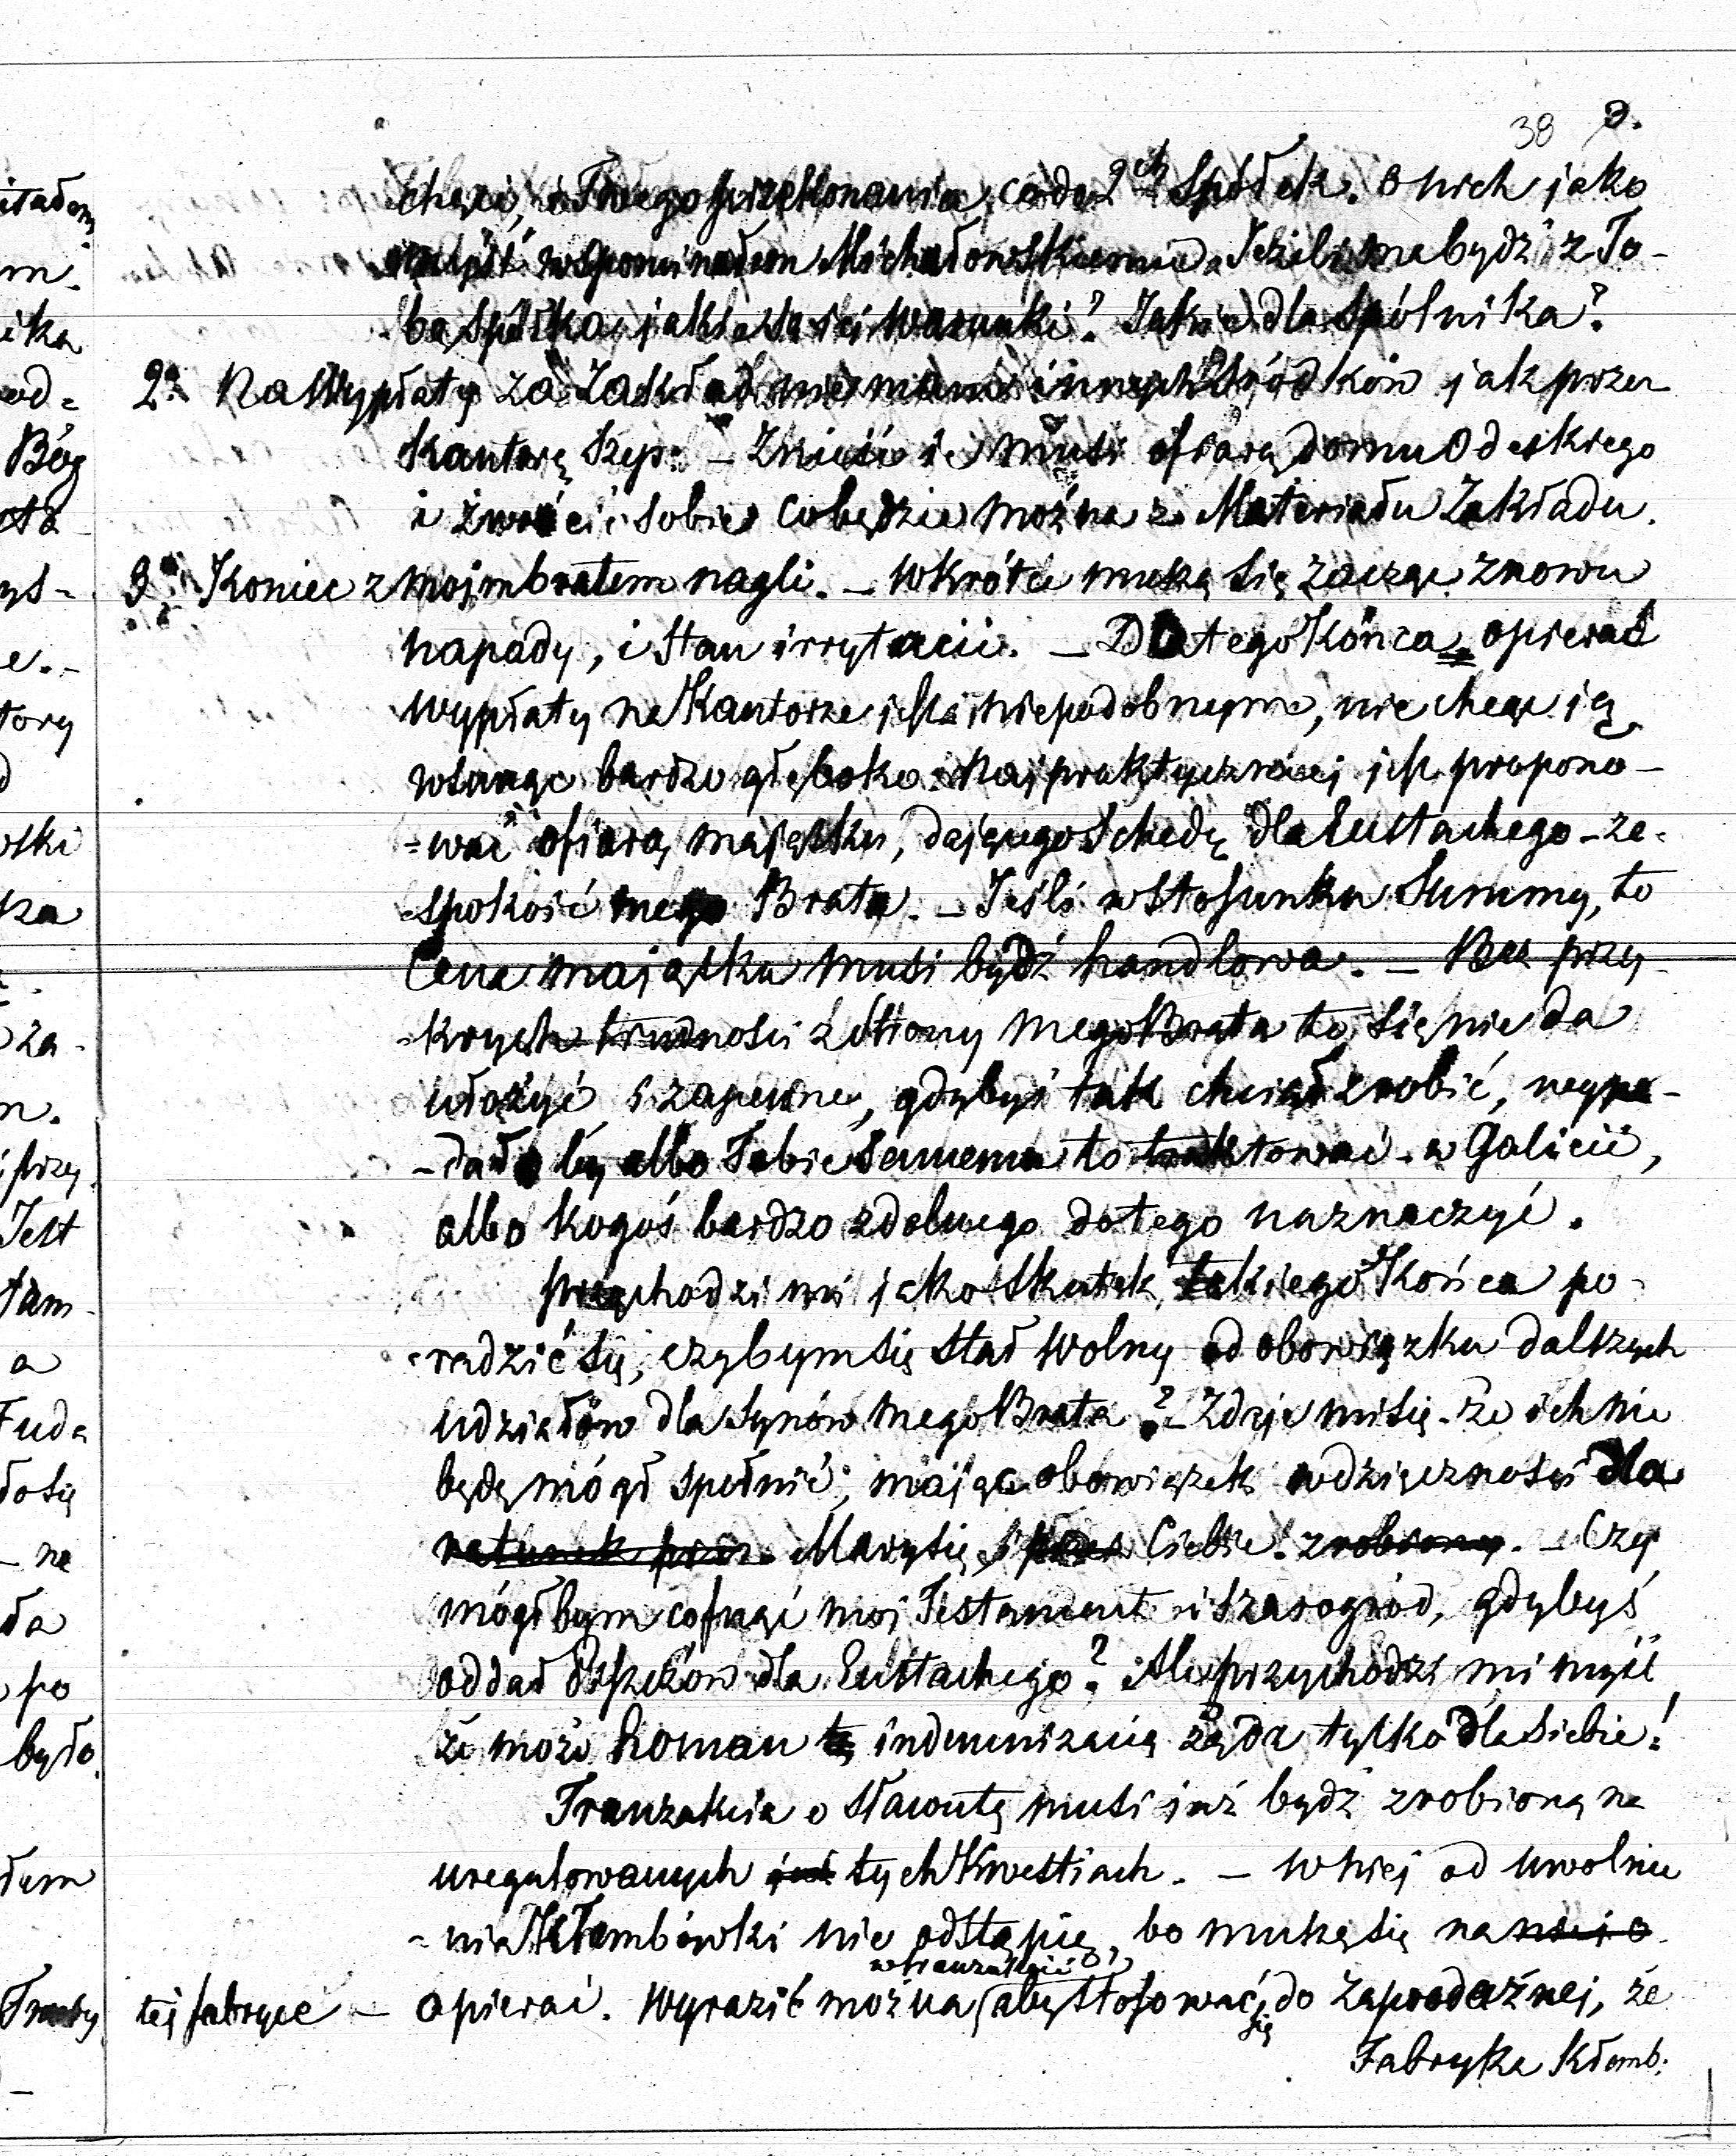 38 3.
chęci, i Twego przekonania, co do 2ch Spółek. O nich jako
myśl wspominałem Michałowskiemu. Jeżeli ma bydź z To-
bą spółka, jakie są jej warunki? Jakie dla Spólnika?
2o Na Wypłatę za Zakład nie mam innych śródków jak przez
Kantorę Szep. – Znieść się musi ofiarą domu Odeskiego
i zwrócić sobie co będzie można z Materiału Zakładu.
3o Koniec z moim bratem nagli. – Wkrótce muszą się zacząć znowu
napady, i stan irrytacii. – Dla tego Końca opierać
wypłaty na Kantorze jest niepodobnym, nie chcąc ją
wsunąć bardzo głęboko. Najpraktyczniej jest propono-
=wać ofiarą majątku, dającego Schedę dla Eustachego – za-
spokoić mego Brata. – Jeśli w stosunku Summy, to
Cena majątku musi bydź handlowa. – Bez przy-
-krych trudności z strony mego Brata to się nie da
ułożyć, i zapewne, gdybyś tak chciał zrobić, wypa-
-dało by albo Tobie samemu to traktować w Galicii,
albo kogoś bardzo zdolnego do tego naznaczyć.
Przychodzi mi jako skutek, takiego Końca po-
-radzić się, czybym się stał wolny od obowiązku dalszych
udziałów dla Synów mego Brata? – Zdaje mi się – że ich nie
będę mógł spełnić, mając obowiązek wdzięczności dla
ratunek przez Marysię, i przez Ciebie. zrobiony. – Czy
mógłbym cofnąć mój Testament i Szarogród, gdybyś
oddał dla Eustachego? Ale przychodzi mi myśl
że może Roman tę indemnizacią żąda tylko dla siebie!
Tranzakcia o Sławutę musi już bydź zrobioną na
uregulowanych już tych Kwestiach. – W niej od uwolnie
-nia Kłembówki nie odstąpię, bo muszę się na niej o
w tranzakcii
tej fabryce – opierać. Wyrazić można, aby stosować się do Zaprodażnej, że
Fabryka Kłemb: